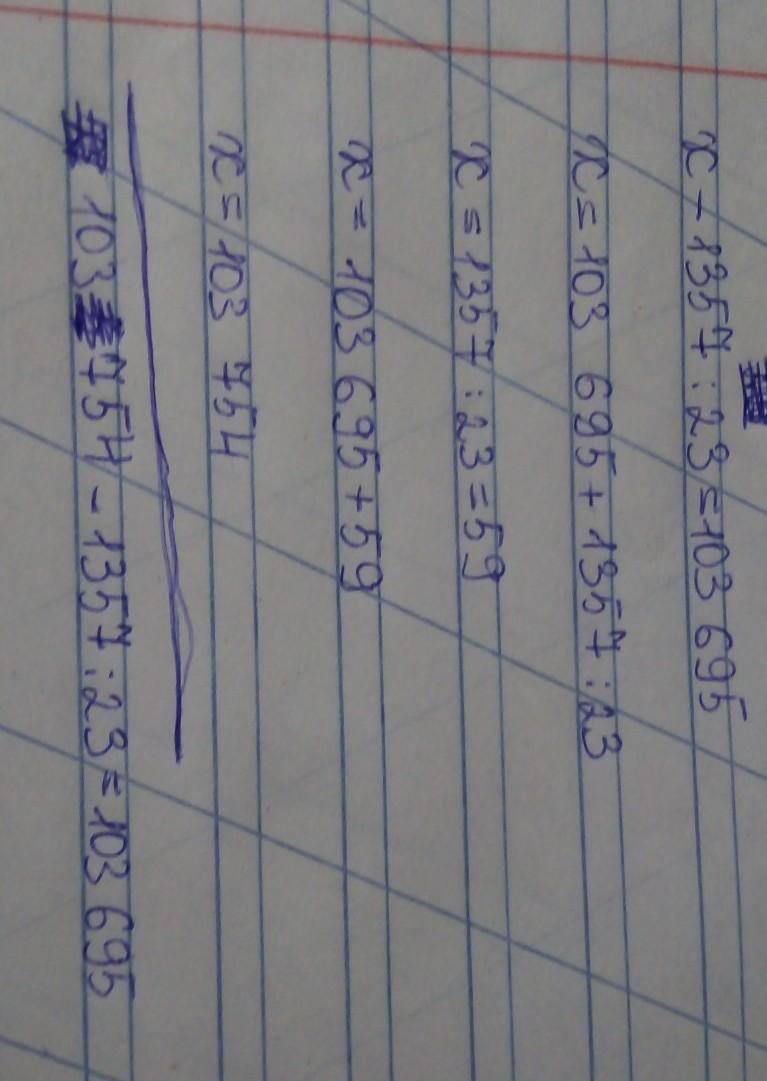 x - 1357 : 23 = 103 695
x = 103 695 + 1357 : 23
x = 1357 : 23 = 59
x = 103 695 + 59
x = 103 754
103 754 - 1357 : 23 = 103 695